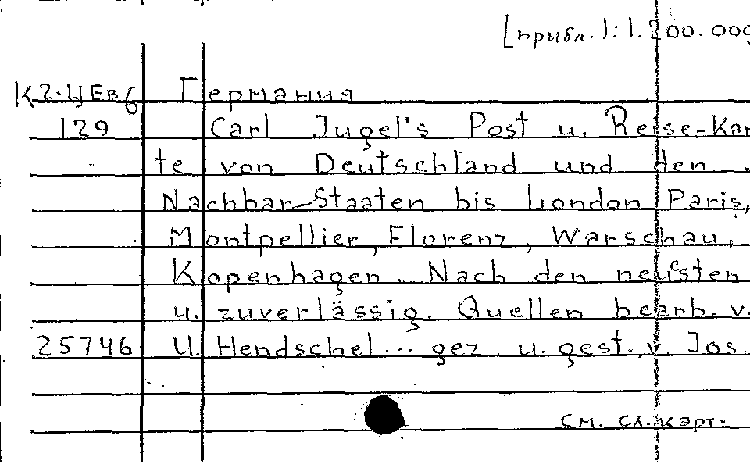 [прибл.]: 1.200.000
К2-ЦЕвб Германия
129 Carl Jugel's Post u. Reise-Kar
te von Deutschland und den
Nachbar-Staaten bis London, Paris,
Montpellier, Florenz, Warschau,
Kopenhagen. Nach den neusten
u. zuverlässig. Quellen bearb. v.
25746 U. Hendschel... gez. u. gest. v. Jos.
См. сл. карт.